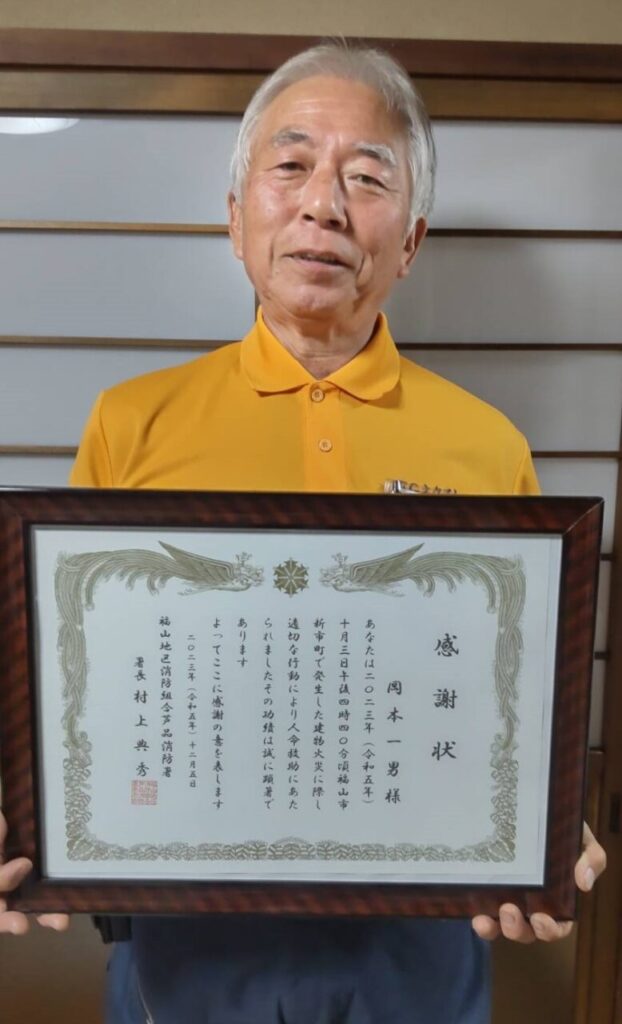 感謝状
岡本一男様
あなたは二〇二三年(令和五年)
十月三日午後四時四〇分頃福山市
新市町で発生した建物火災に際し
適切な行動により人命救助にあた
られましたその功績は誠に顕著で
あります
よってここに感謝の意を表します
二〇二三年(令和五年)十二月五日
福山地区消防組合芦品消防署
署長 村上典秀